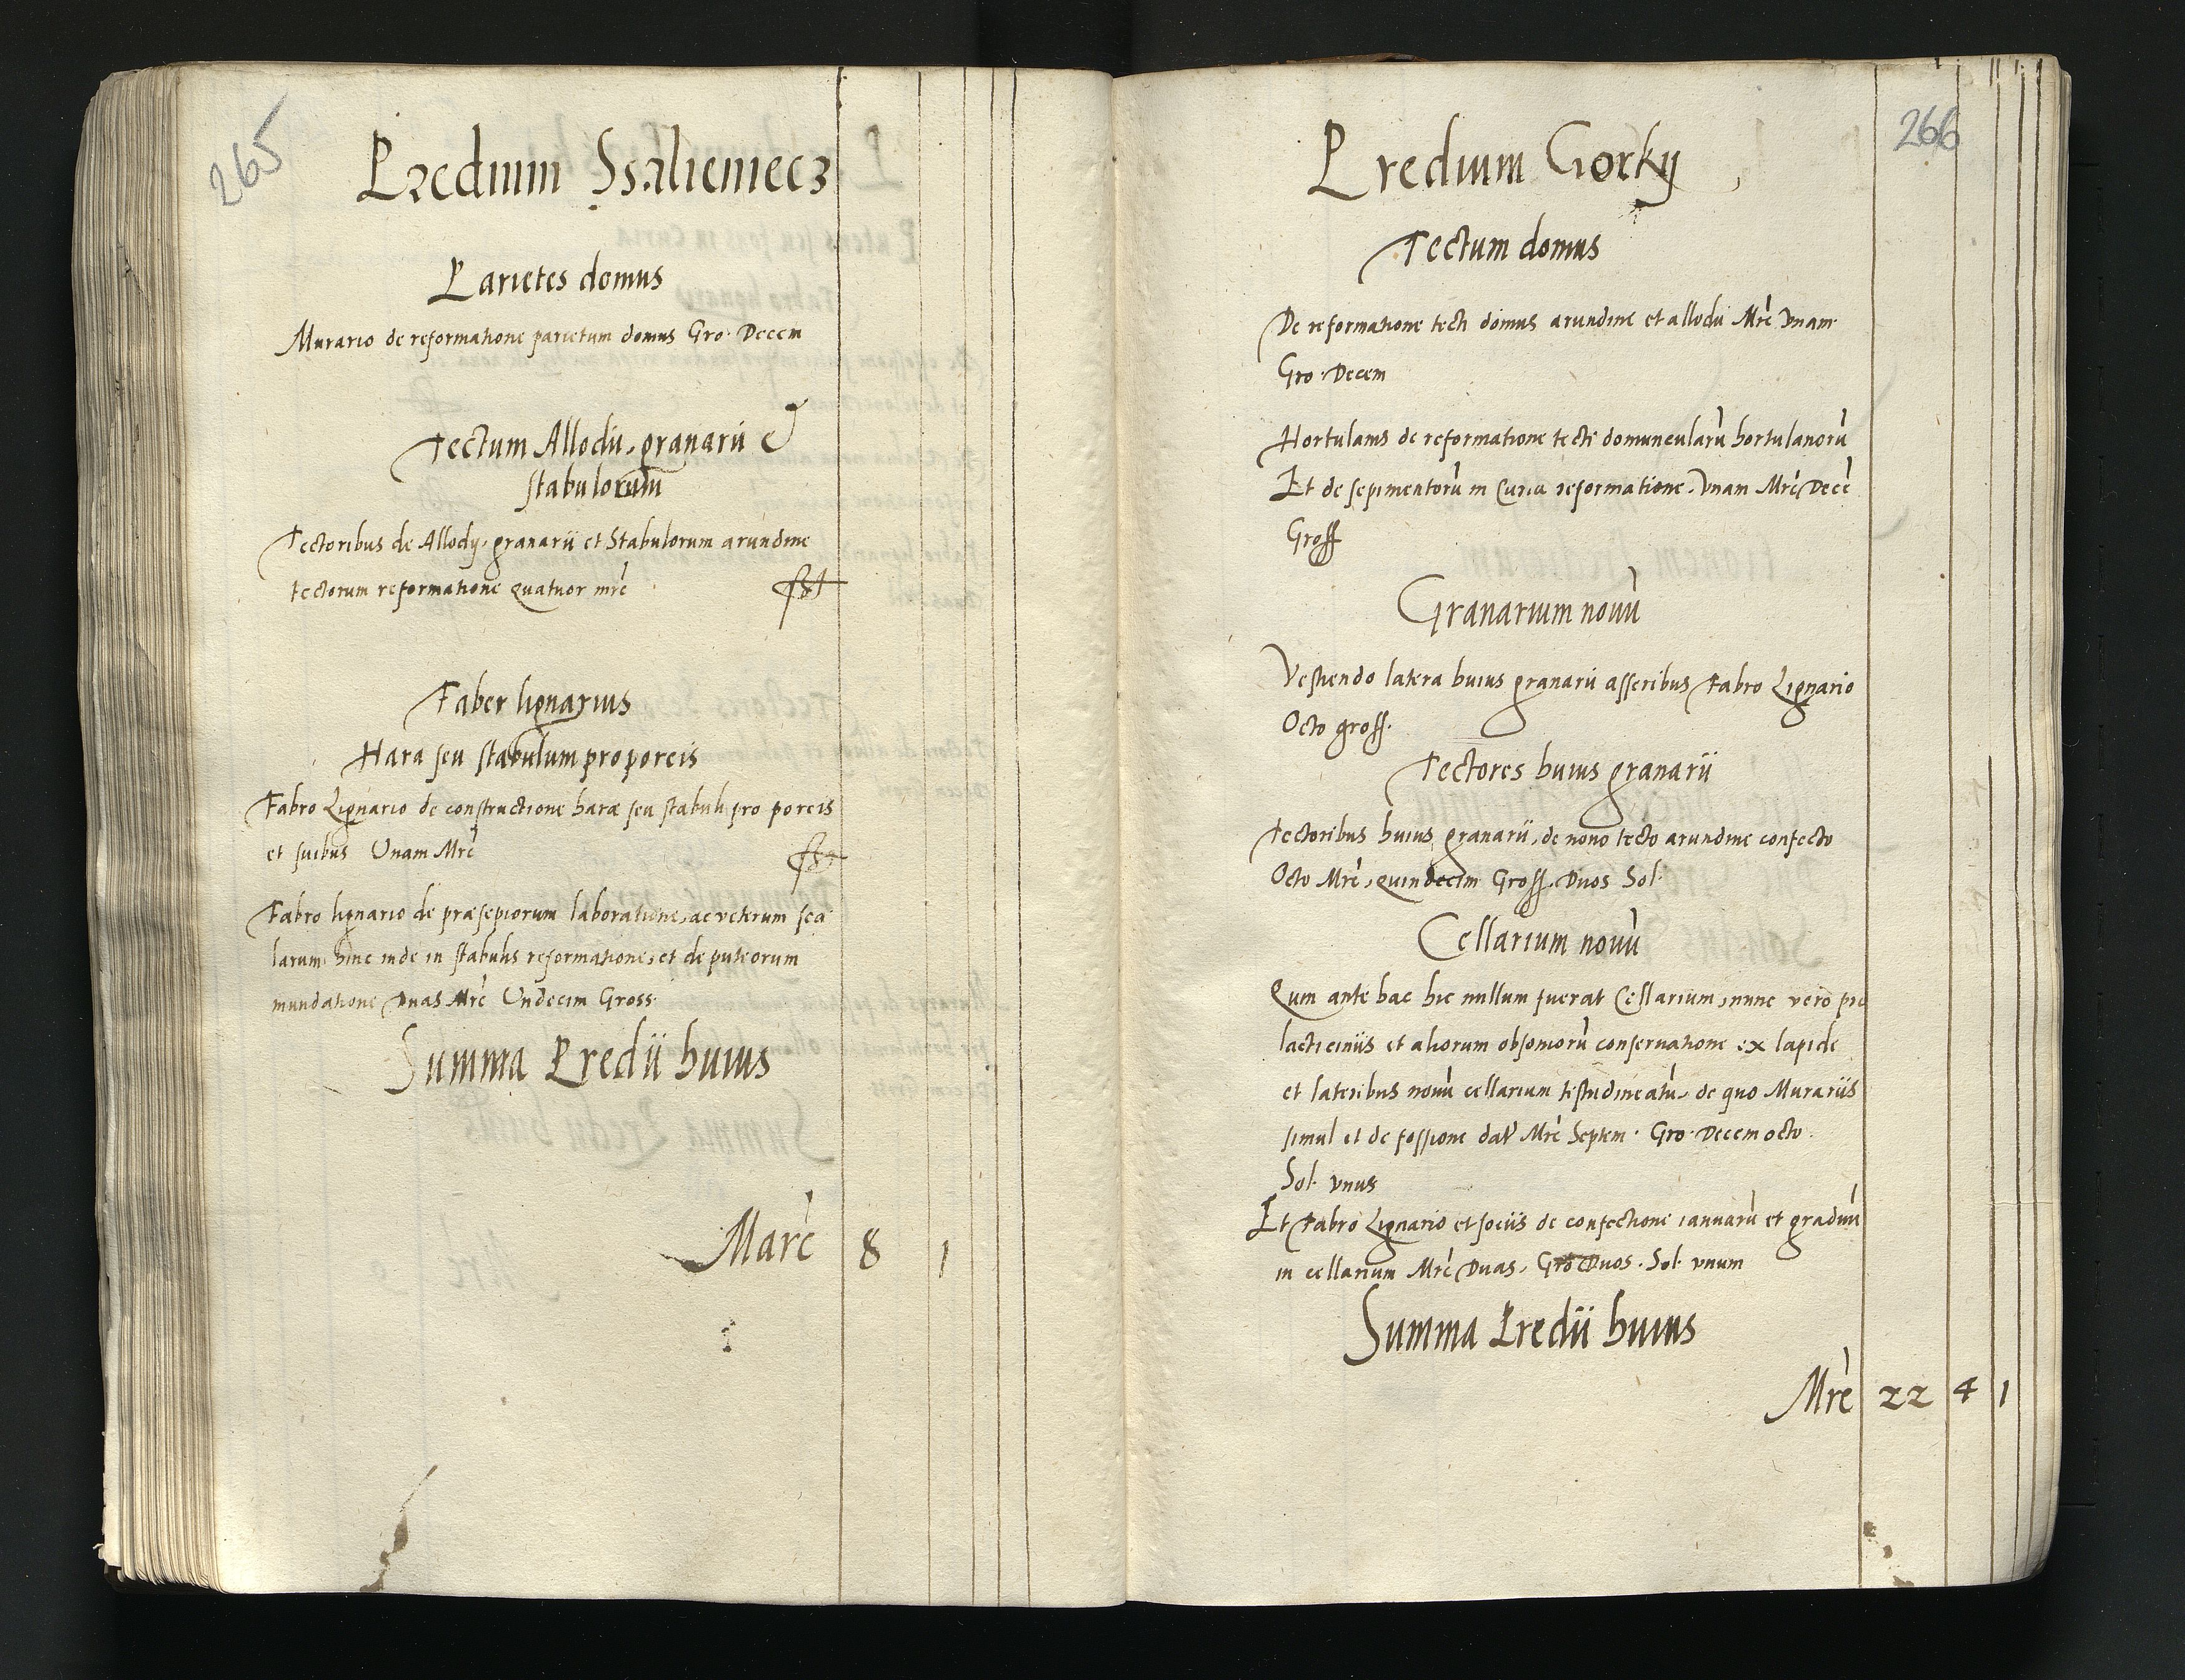 265
Predium Ssaliemecz
Parietes domus
Murario de reformatione parietum domus Gro. Decem
Tectum Allodii, granarii et
stabulorum
Tectoribus de Allody, granarii et Stabulorum arundine
tectorum reformatione Quatuor mrc
Faber lignarius
Hara seu stabulum pro porcis
Fabro Lignario de constructione haræ seu stabuli pro porcis
et suibus Unam Mrc
Fabro lignario de præsepiorum laboratione, ac veterum sca
larum hinc inde in stabulis reformatione, et de puteorum
mundatione Duas Mrc Undecim Gross.
Summa Predii huius
Marc 8 1
266
Predium Gorky
Tectum domus
De reformatione tecti domus arundine et allodii Mrc Vnam
Gro. Decem
Hortulanis de reformatione tecti domuncularu hortulanoru
Et de sepimentoru in Curia reformatione. Vnam Mrc Dece
Gross
Granarium nouu
Vestiendo latera huius granarii asseribus Fabro Lignario
Octo gross.
Tectores huius granarii
Tectoribus huius granarii, de nouo tecto arundine confecto
Octo Mrc, quindecim Gross. Duos Sol.
Cellarium nouu
Qum ante hac hic nullum fuerat Cellarium, nunc vero pro
lacticiniis et aliorum obsonioru conseruatione ex lapide
et lateribus nouu cellarium testudineatu, de quo Murariis
simul et de fossione dat Mrc Septem. Gro. Decem octo.
Sol. vnus
Et Fabro Lignario et sociis de confectione ianuaru et graduu
in cellarium Mrc Duas, Gro Duos. Sol. vnum
Summa Predii huius
Mrc 22 4 1